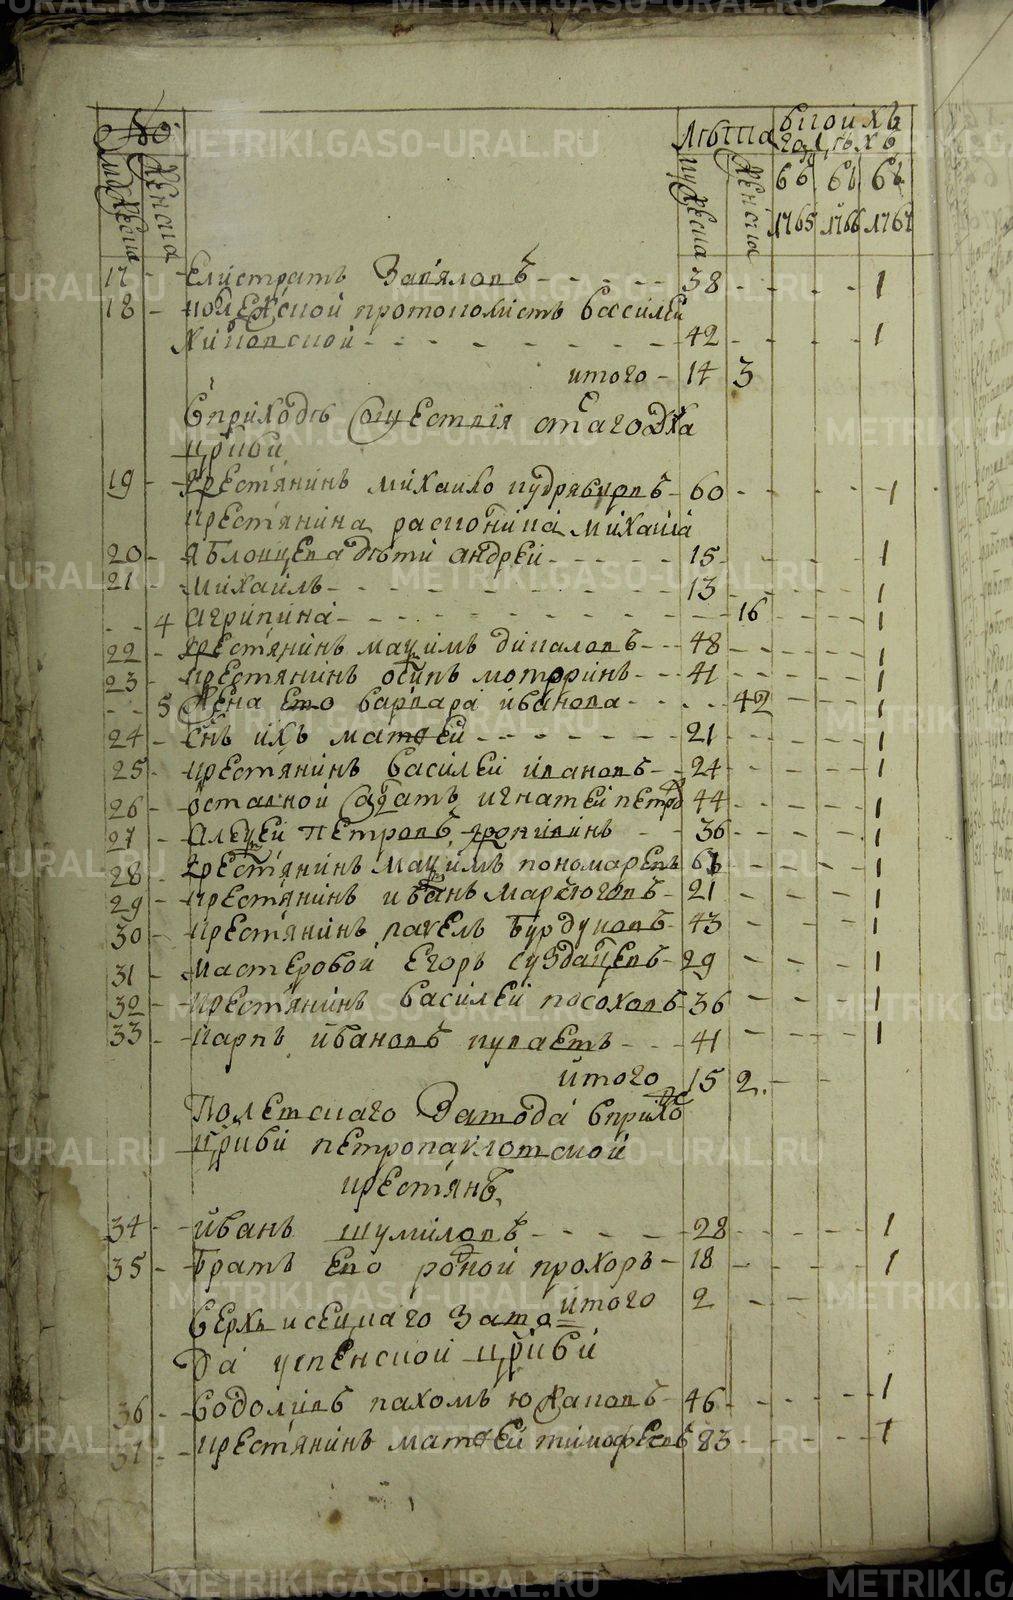 №
мужеска женска
лѣта
мужеска женска
вкоихъ годѣхъ
въ 1765 въ 1766 въ 1767
17 - елистратъ завяловъ - 38 - 1
18 - колежской протоколистъ василей
хитовской - 42 - 1
итого - 14 3
вприходѣ сошествия стаго дха
цркви
19 - крестянинъ михаило кудрявцовъ - 60 - 1
крестянина раскотника михаила
20 - яблонцева дѣти андрей - 15 - 1
21 - михайлъ - 13 - 1
4 агрипина - 16 - 1
22 - крестянинъ маѯимъ дикаловъ - 48 - 1
23 - крестянинъ осипъ моторинъ - 41 - 1
5 жена ево варвара иванова - 42 - 1
24 - снъ ихъ матѳей - 21 - 1
25 - крестянинъ василей ивановъ - 24 - 1
26 - оставной салдатъ игнатей петровъ 44 - 1
27 - алеѯей петровъ кропивинъ - 36 - 1
28 - крестянинъ маѯимъ пономаревъ 61 - 1
29 - крестянинъ иванъ - 21 - 1
30 - крестянинъ павелъ бурдуковъ - 43 - 1
31 - мастеровой егоръ суздалцевъ - 29 - 1
32 - крестянинъ василей посоховъ - 36 - 1
33 - карпъ ивановъ куваевъ - 41 - 1
итого 15 2
полевскаго завода вприходе
цркви петропавловской
крестянъ
34 - иванъ шумиловъ - 28 - 1
35 - братъ ево родной прохоръ - 18 - 1
итого 2
верхъ исецкаго заво=
да успенской цркви
36 - водоливъ пахомъ южаковъ - 46 - 1
37 - крестянинъ матѳей тимофеевъ 83 - 1
METRIKI.GASO-URAL.RU